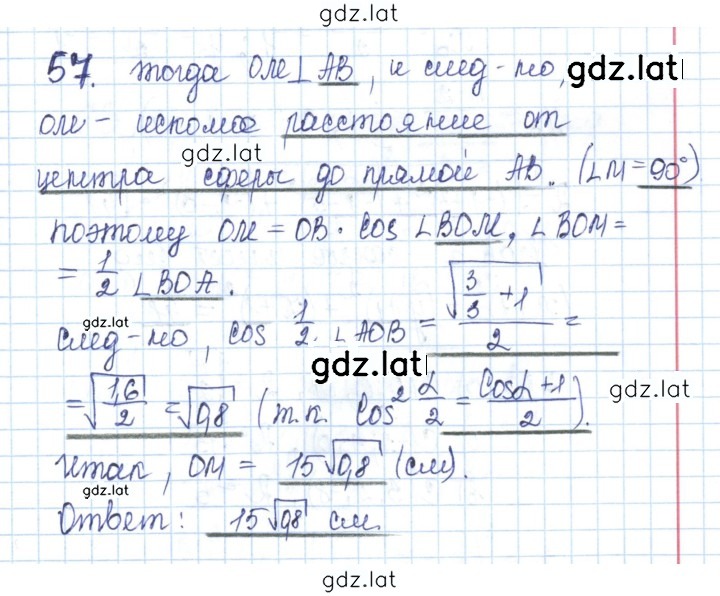 gdz.lat
57. тогда ОМ⊥ АВ, и след-но, gdz.lat
ОМ - искомое расстояние от
gdz.lat
центра сферы до прямой АВ. (∠M = 90°)
поэтому ОМ = ОВ · cos ∠BOM, ∠BOM =
= 1/2 ∠BOA.
gdz.lat
след-но, cos 1/2 · ∠AOB = √(3/3 + 1)/2 =
gdz.lat
= √(1,6/2) = √0,8 (т.к. cos² α/2 = (cosα + 1)/2).
gdz.lat
Итак, ОМ = 15√0,8 (см).
gdz.lat
Ответ: 15√0,8 см.
gdz.lat